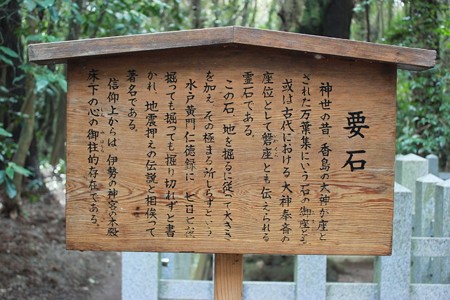 要石
神世の昔 香島の大神が座と
された万葉集にいう石の御座とも
或は古代における大神奉斎の
座位として磐座とも伝えられる
霊石である。
この石、地を掘るに従って大きさ
を加え、その極まる所しらずという。
水戸黄門仁徳録に、七日七夜
掘っても掘っても掘り切れずと書
かれ、地震押えの伝説と相俟って
著名である。
信仰上からは、伊勢の神宮の本殿
床下の心の御柱的存在である。